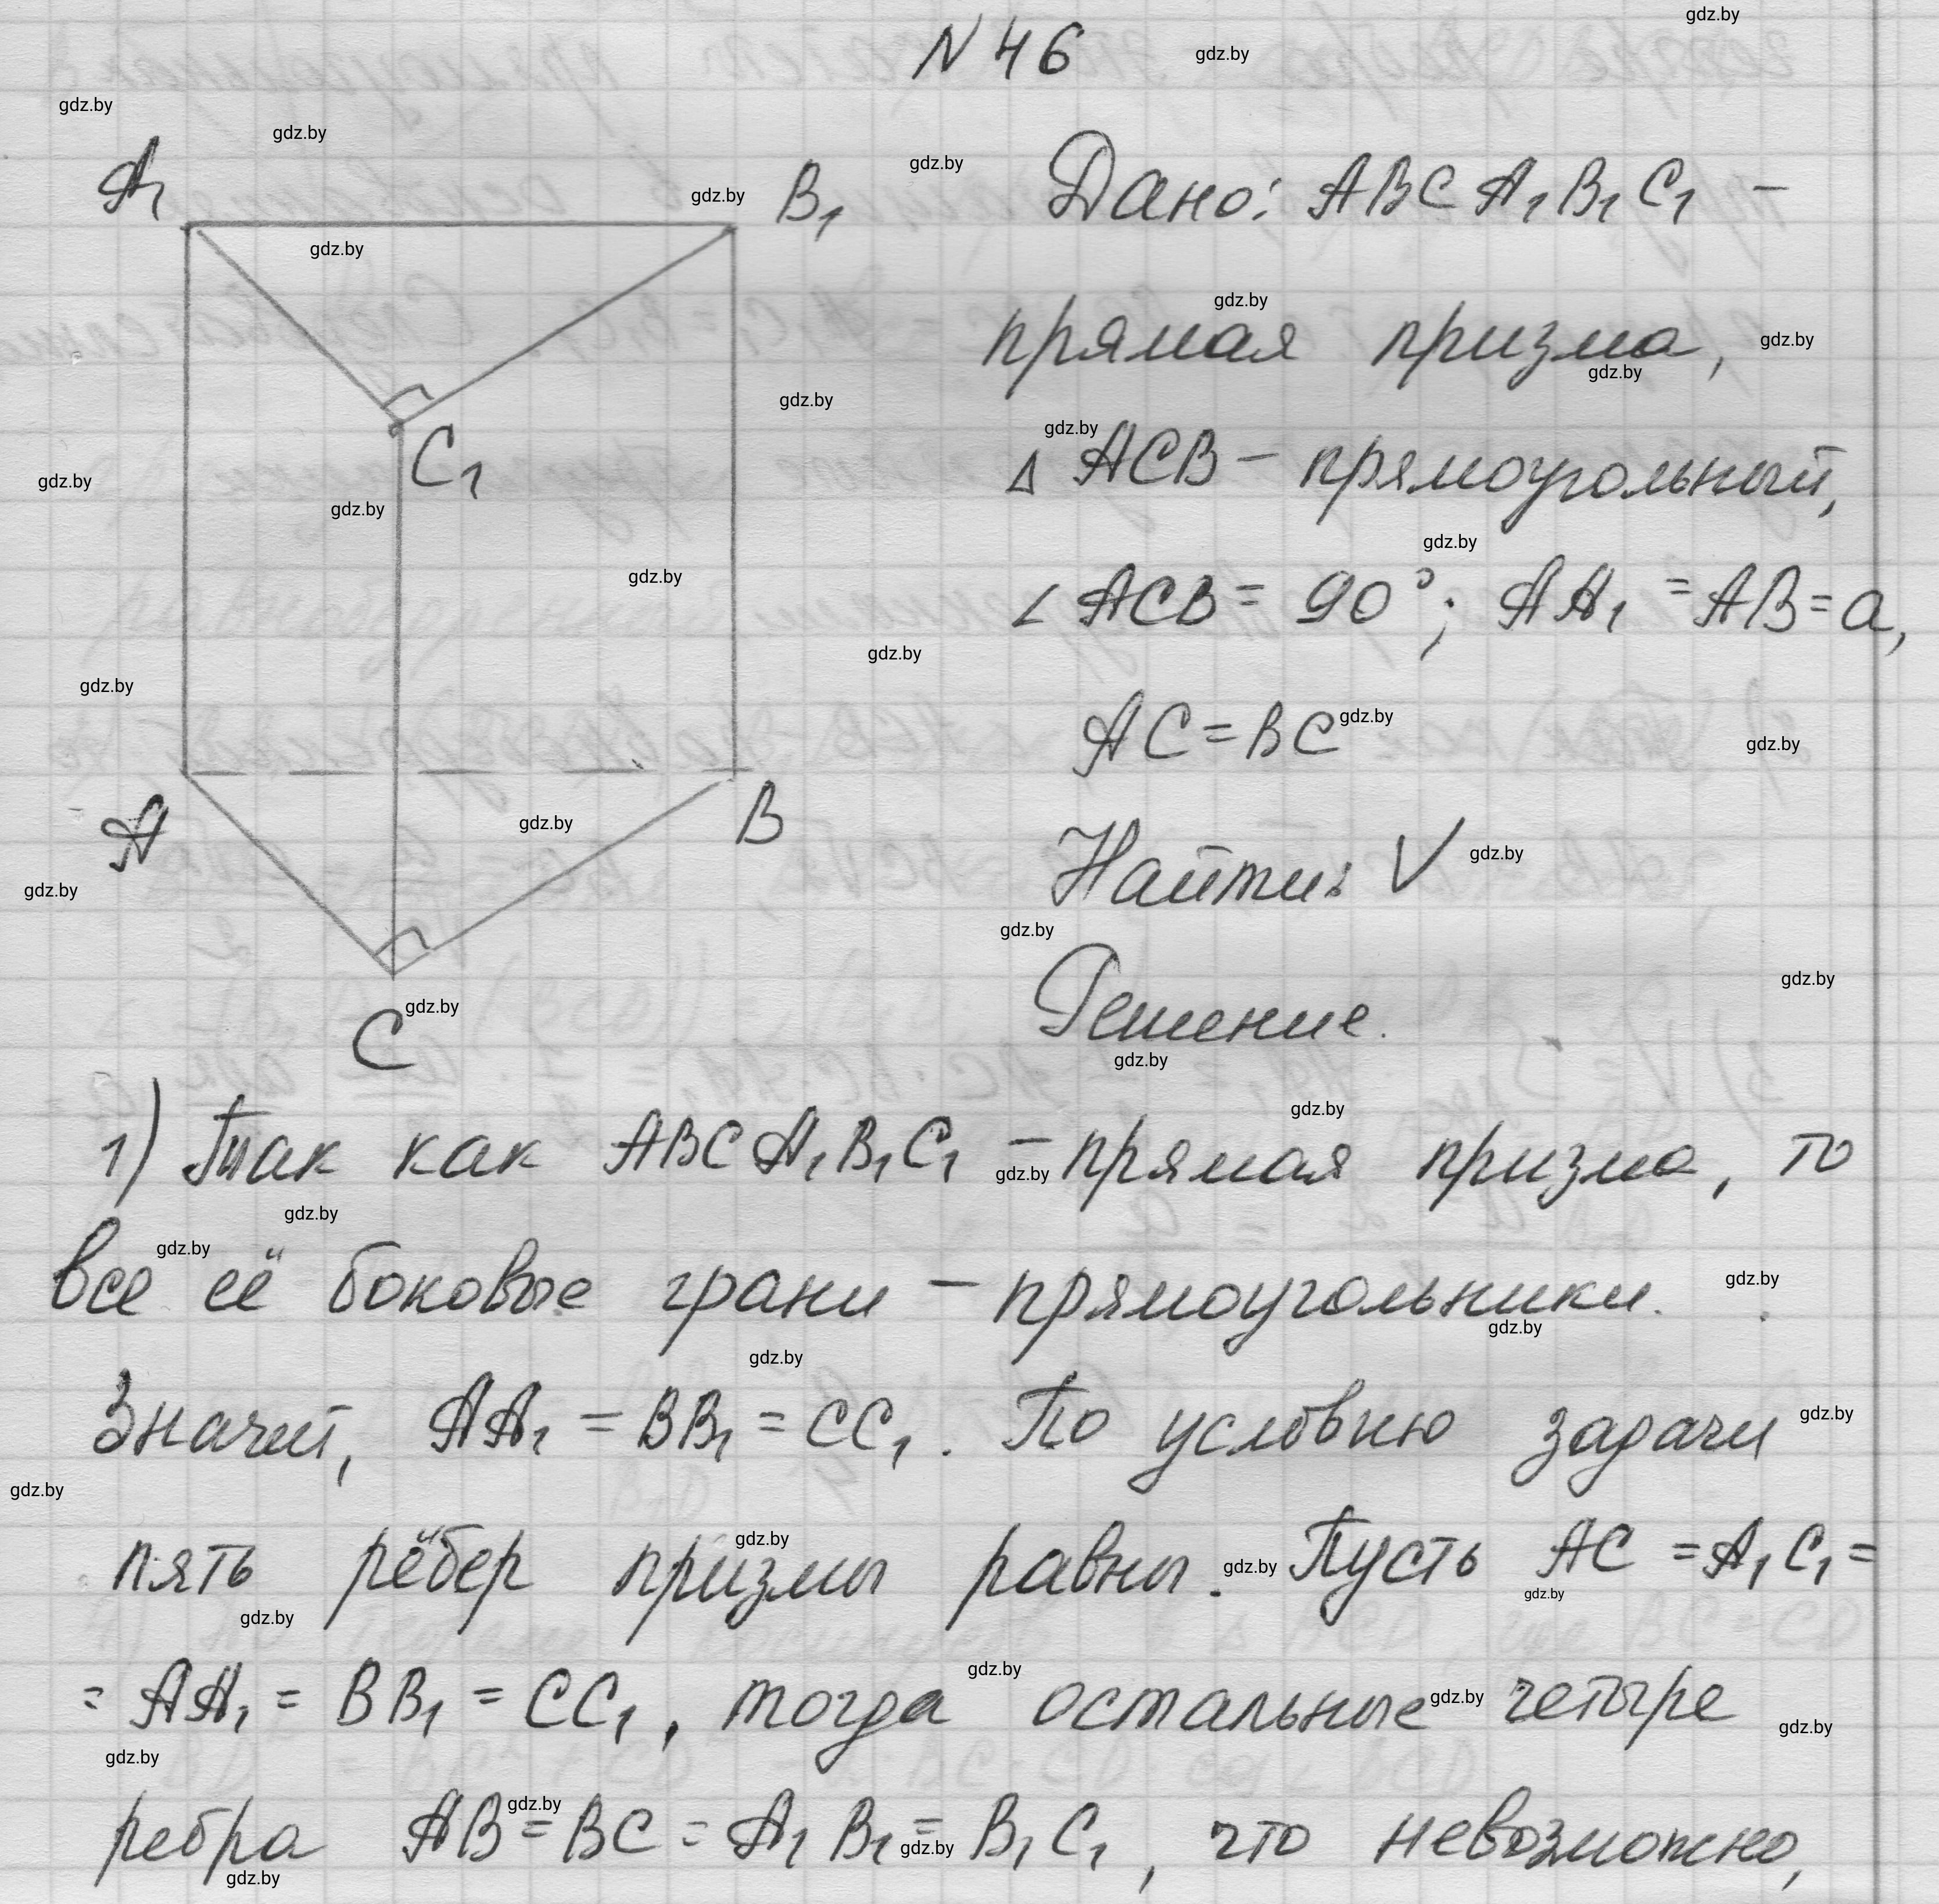 N 46
A₁
B₁
Дано: ABCA₁B₁C₁ –
прямая призма,
C₁
Δ ACB – прямоугольный,
∠ ACB = 90°; AA₁ = AB = a,
AC = BC
A
B
Найти: V
C
Решение.
1) Так как ABCA₁B₁C₁ – прямая призма, то
все её боковые грани – прямоугольники.
Значит, AA₁ = BB₁ = CC₁. По условию задачи
пять рёбер призмы равны. Пусть AC = A₁C₁ =
= AA₁ = BB₁ = CC₁, тогда остальные четыре
ребра AB = BC = A₁B₁ = B₁C₁, что невозможно,
gdz.by